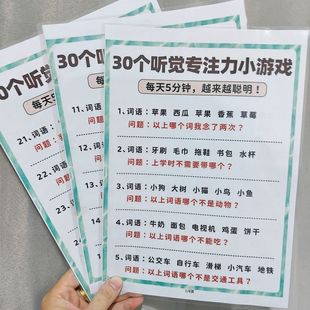 30个听觉专注力小游戏
每天5分钟，越来越聪明！
1、词语：苹果 西瓜 苹果 香蕉 草莓
问题：以上哪个词我念了两次？
2、词语：牙刷 毛巾 拖鞋 书包 水杯
问题：上学时不需要带哪个？
3、词语：小狗 大树 小猫 小鸟 小鱼
问题：以上词语哪个不是动物？
4、词语：牛奶 面包 电视机 鸡蛋 饼干
问题：以上词语哪个不能吃？
5、词语：公交车 自行车 滑梯 小汽车 地铁
问题：以上词语哪个不是交通工具？
30个听
每
11、词语：
问题：
12、
问题
13、
问题
14
问
1
30个听觉
每天
21、词语：
问题：
22、词
问题
23、词
问题
24、
问题
25
问